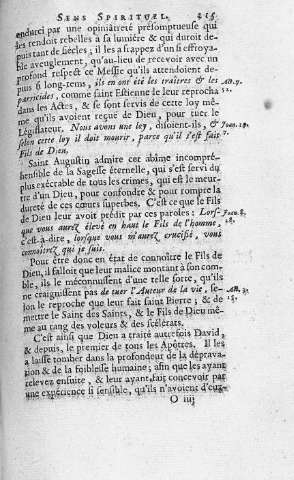 SENS SPIRITUEL. 215
endurci par une opiniâtreté présomptueuse qui
les rendoit rebelles à sa lumière & qui duroit de-
puis tant de siécles; il les a frappez d'un si effroya-
ble aveuglement, qu'au-lieu de recevoir avec un
profond respect ce Messie qu'ils attendoient de-
puis si long-tems, ils en ont été les traîtres & les Act. 7.
parricides, comme saint Estienne le leur reprocha 52.
dans les Actes, & se sont servis de cette loy mê-
me qu'ils avoient reçuë de Dieu, pour tuer le
Législateur. Nous avons une loy, disoient-ils, & Joan. 19.
selon cette loy il doit mourir, parce qu'il s'est fait 7.
Fils de Dieu.
Saint Augustin admire cet abîme incompré-
hensible de la Sagesse éternelle, qui s'est servi du
plus execrable de tous les crimes, qui est le meur-
tre d'un Dieu, pour confondre & pour rompre la
dureté de ces cœurs superbes. C'est ce que le Fils
de Dieu leur avoit prédit par ces paroles: Lors- Joan. 8.
que vous aurez élevé en haut le Fils de l'homme, 28.
c'est-à-dire, lorsque vous m'aurez crucifié, vous
connoîtrez que je suis.
Pour être donc en état de connoître le Fils de
Dieu, il falloit que leur malice montant à son com-
ble, ils le méconnussent d'une telle sorte, qu'ils
ne craignissent pas de tuer l'Auteur de la vie, se- Act. 3.
lon le reproche que leur fait saint Pierre; & de 15.
mettre le Saint des Saints, & le Fils de Dieu mê-
me au rang des voleurs & des scélérats.
C'est ainsi que Dieu a traité autrefois David,
& depuis, le premier de tous les Apôtres. Il les
a laissé tomber dans la profondeur de la déprava-
tion & de la foiblesse humaine; afin que les ayant
relevez ensuite, & leur ayant fait concevoir par
une expérience si sensible, qu'ils n'avoient d'eux-
O iiij